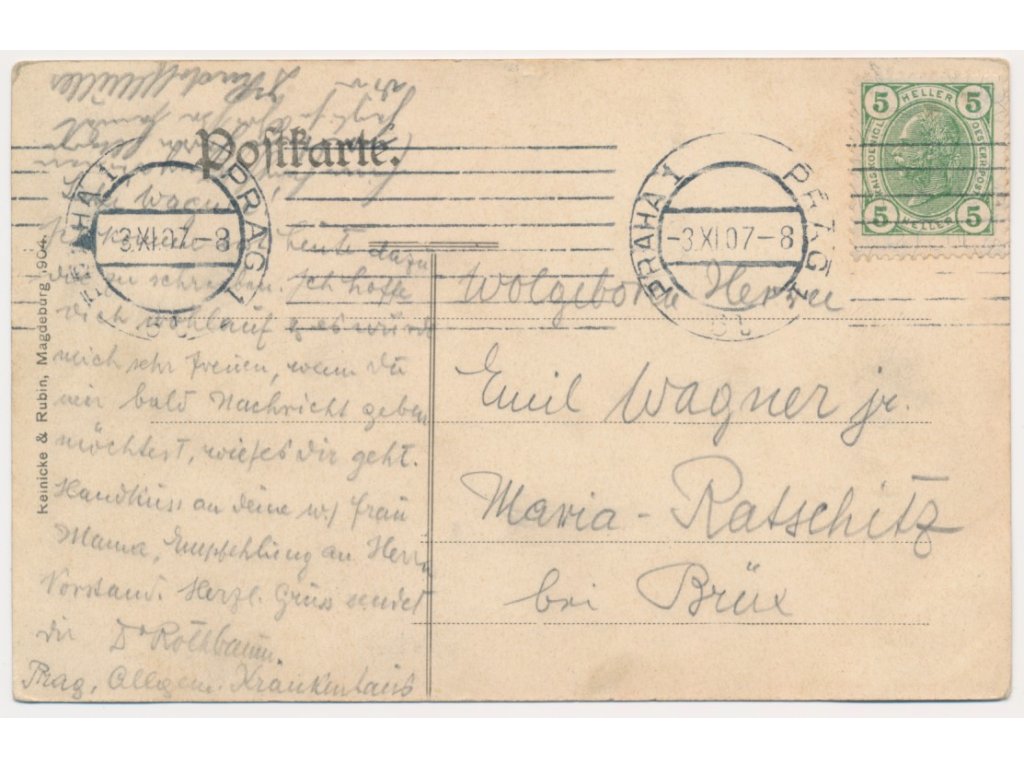 Postkarte.
PRAHA 1 PRAG 1
-3 XI 07-8
PRAHA 1 PRAG 1
-3 XI 07-8
5 HELLER 5
KAIS. KOENIGL. OESTERR. POST
5 HELLER 5
Wagn
heute dazu
zu schreiben. Ich hoffe
dich wohlauf & es würde
mich sehr freuen, wenn du
mir bald Nachricht geben
möchtest, wie es dir geht.
Handkuss an deine w. Frau
Mama, Empfehlung an Herrn
Vorstand. Herzl. Gruss sendet
dir Dr Rothbaum.
Prag, Allgem. Krankenhaus
Wolgeborne Herrn
Emil Wagner jr.
Maria-Ratschitz
bei Brüx
Reinicke & Rubin, Magdeburg, 1904.